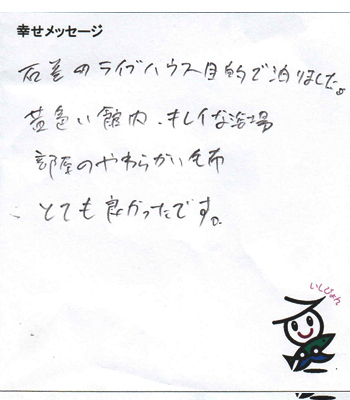 幸せメッセージ
石巻のライブハウス目的で泊りました。
黄色い館内、キレイな浴場
部屋のやわらかい毛布
とても良かったです。
いしぴょん